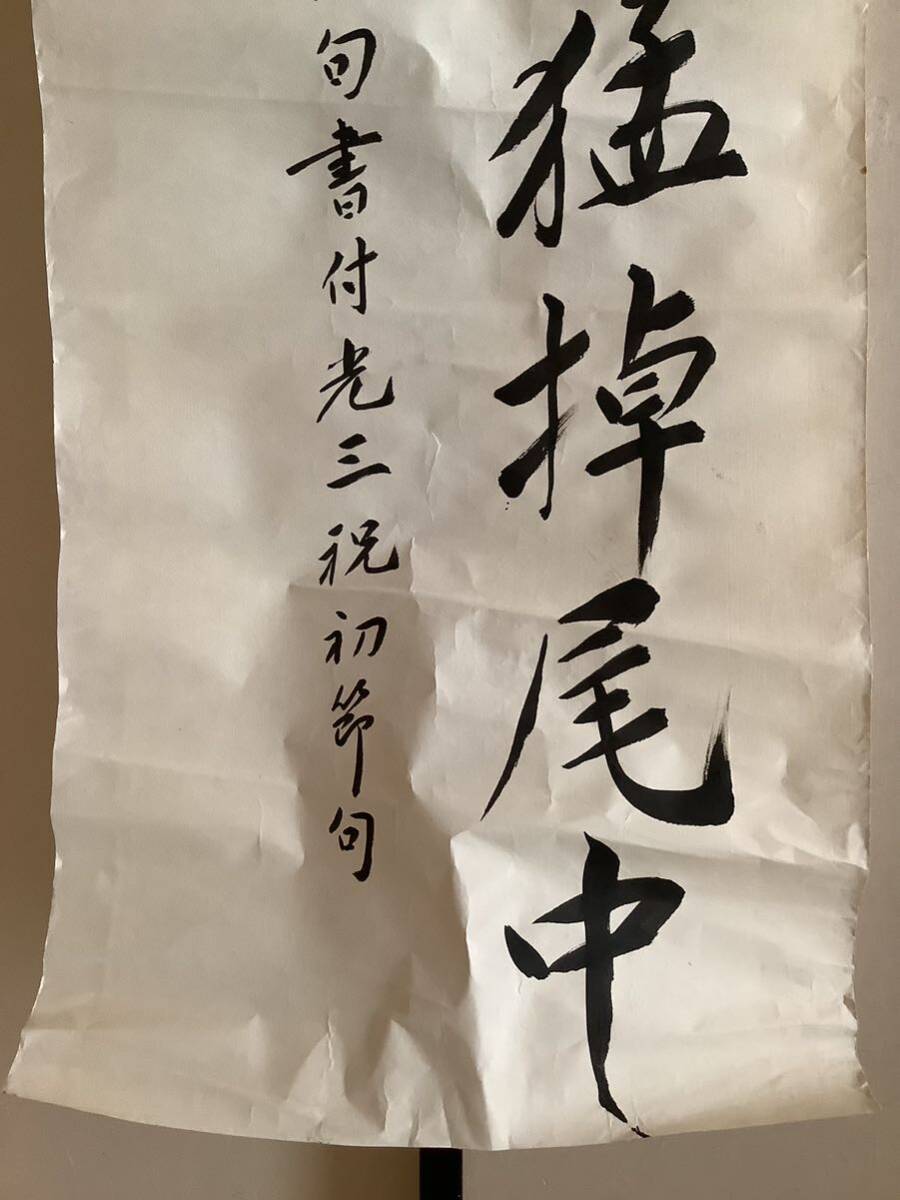 猛掉尾中
句書付光三祝初節句